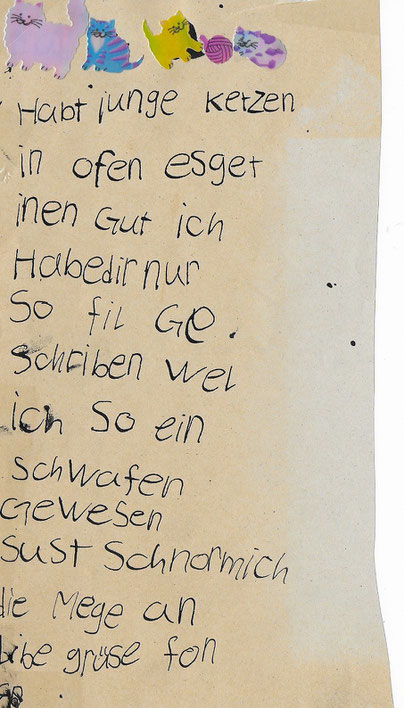 Habt junge Ketzen
in ofen esget
inen Gut ich
Habedir nur
So fil Ge.
Schriben wel
ich So ein
Schwafen
Gewesen
Sust Schnormich
die Mege an
Libe grüse fon